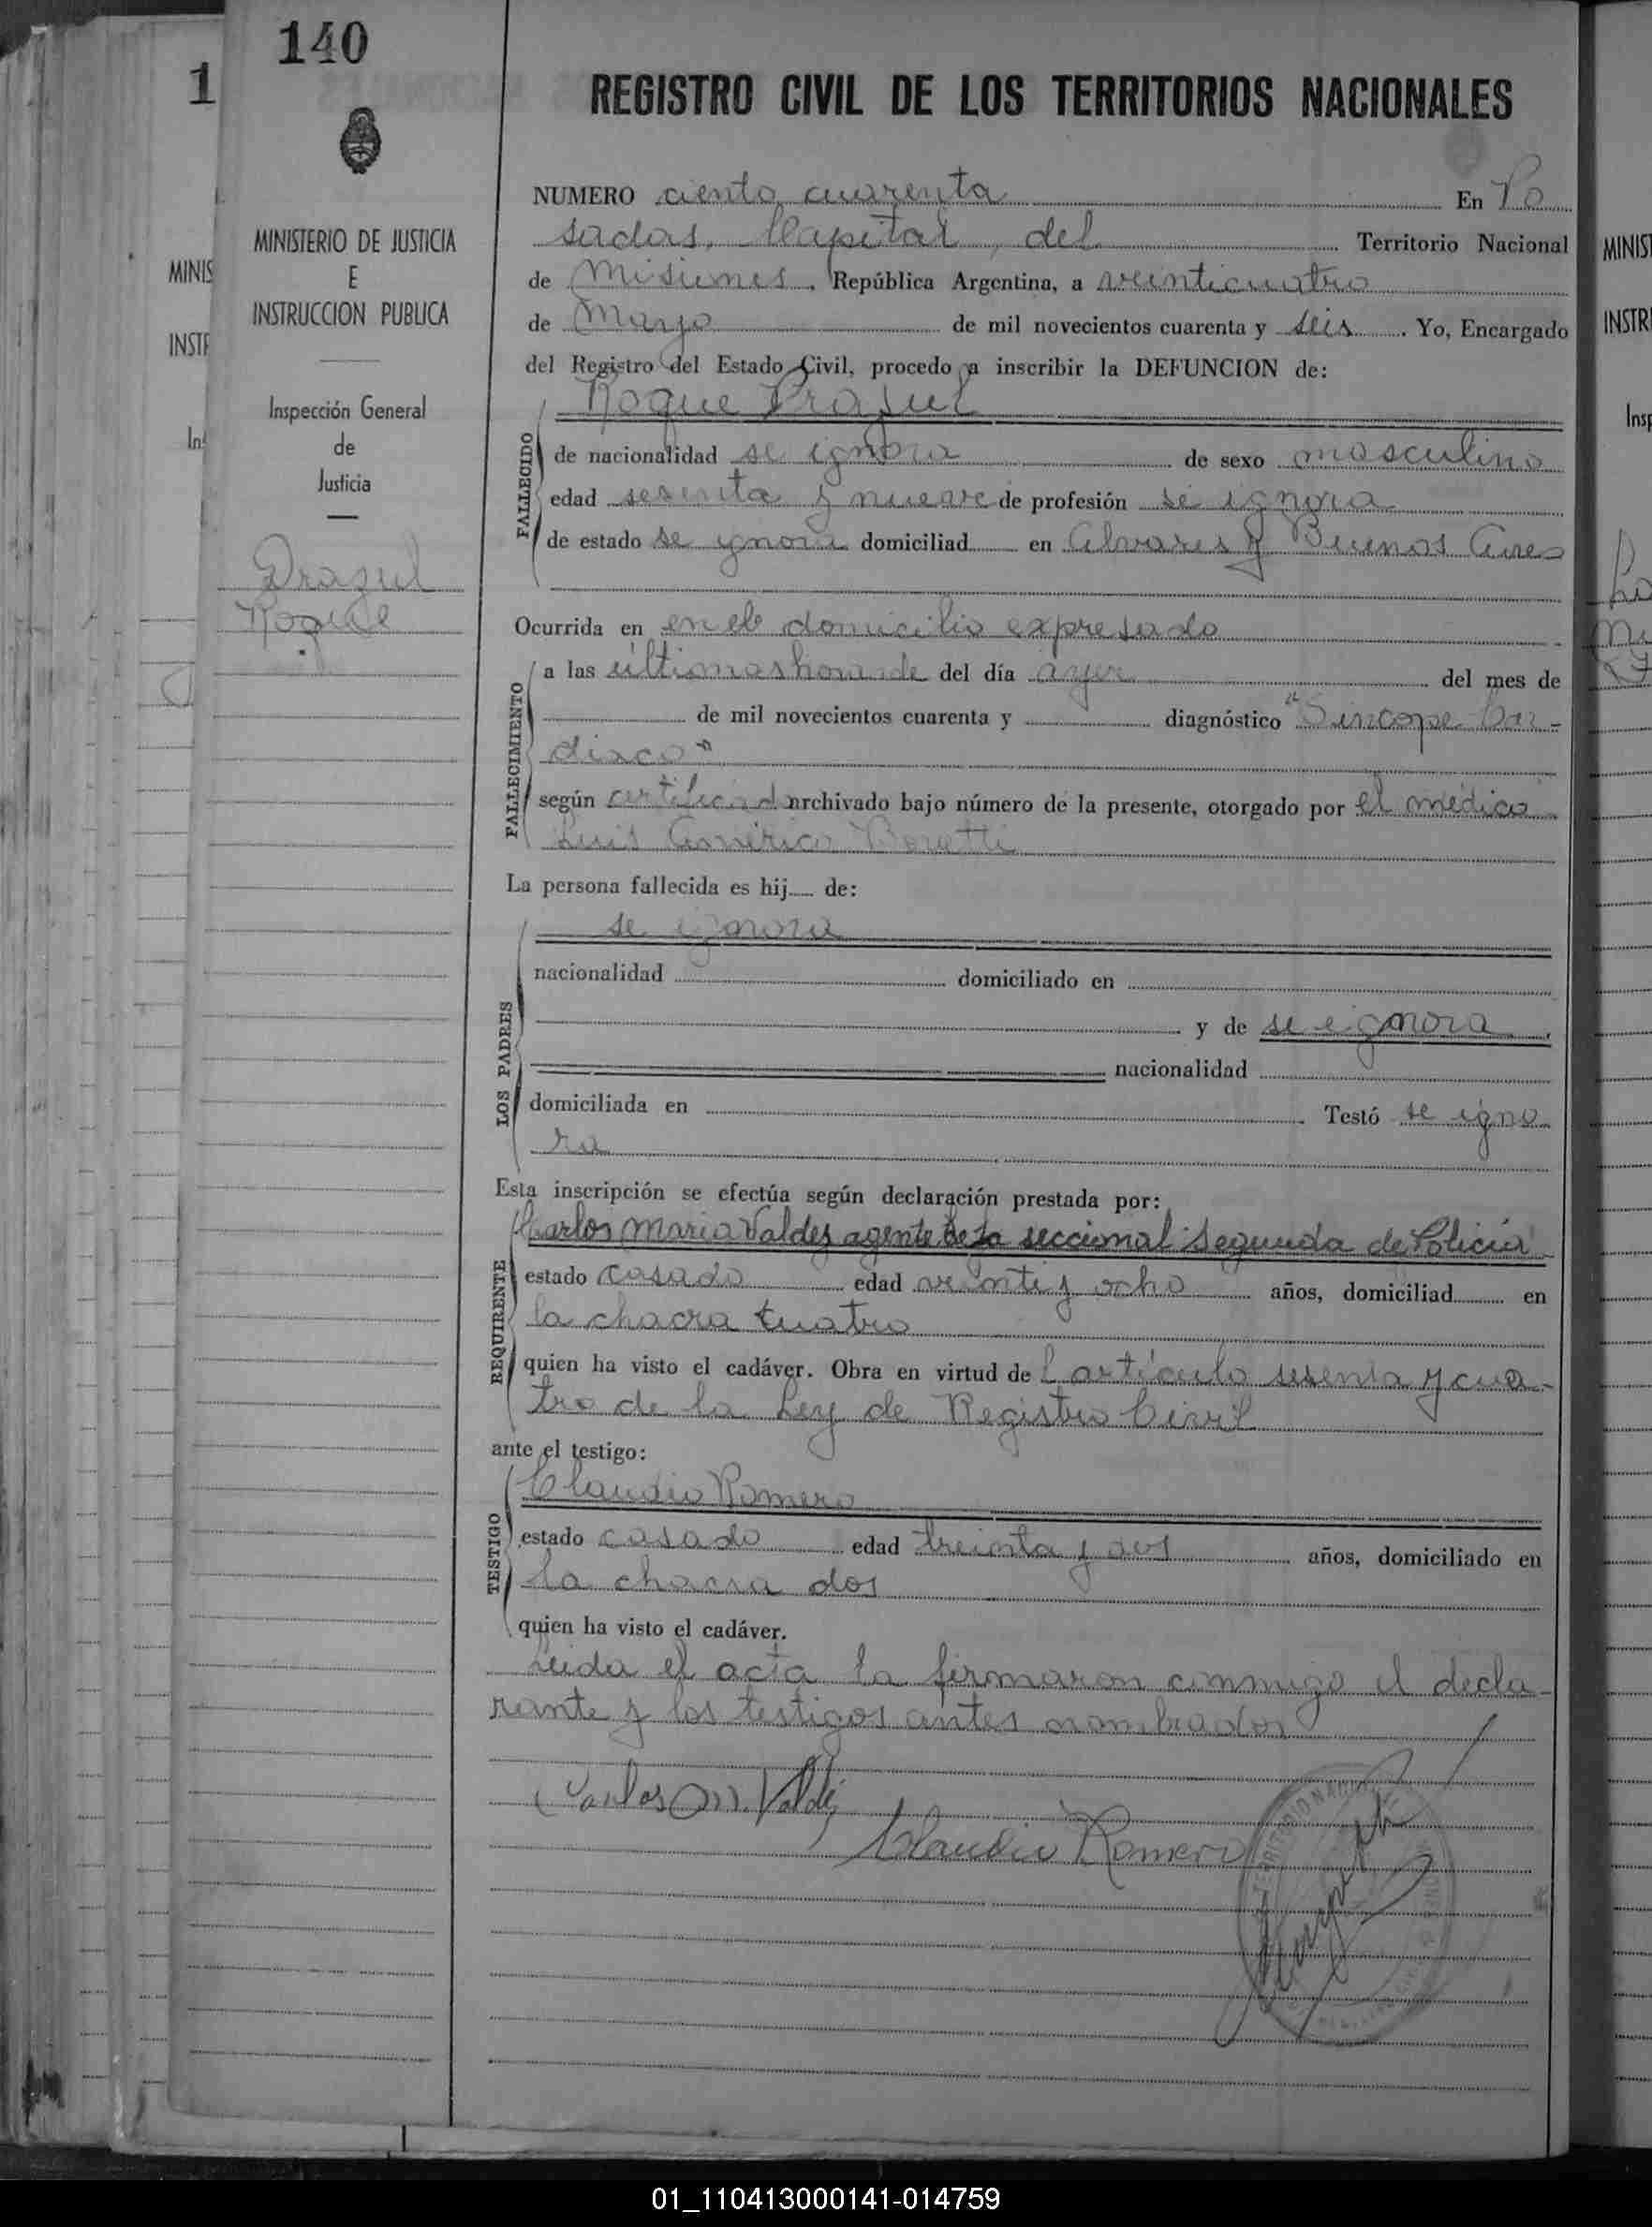 140
1
REGISTRO CIVIL DE LOS TERRITORIOS NACIONALES
MINISTERIO DE JUSTICIA
E
INSTRUCCION PUBLICA
Inspección General
de
Justicia
Roque
NUMERO ciento cuarenta En Po
sadas, Capital, del Territorio Nacional
de Misiones, República Argentina, a veinticuatro
de Mayo de mil novecientos cuarenta y seis. Yo, Encargado
del Registro del Estado Civil, procedo a inscribir la DEFUNCION de:
Roque
FALLECIDO
de nacionalidad se ignora de sexo masculino
edad sesenta y nueve de profesión se ignora
de estado se ignora domiciliad en Alvares y Buenos Aires
Ocurrida en en el domicilio expresado
FALLECIMIENTO
a las últimas horas de del día ayer del mes de
de mil novecientos cuarenta y diagnóstico "Sincope Car-
diaco"
según certificado archivado bajo número de la presente, otorgado por el médico
Luis América
La persona fallecida es hij de:
LOS PADRES
se ignora
nacionalidad domiciliado en
y de se ignora
nacionalidad
domiciliada en Testó se igno
ra
Esta inscripción se efectúa según declaración prestada por:
REQUIRENTE
Carlos Maria Valdez agente de la seccional Segunda de Policía
estado casado edad veinte y ocho años, domiciliad en
la chacra cuatro
quien ha visto el cadáver. Obra en virtud de l artículo sesenta y cua-
tro de la Ley de Registro Civil
ante el testigo:
TESTIGO
Claudio Romero
estado casado edad treinta y dos años, domiciliado en
la chacra dos
quien ha visto el cadáver.
Leida el acta la firmaron conmigo el decla-
rante y los testigos antes nombrados
Carlos M. Valdéz
Claudio Romero
MINIS
INSTR
01_110413000141-014759